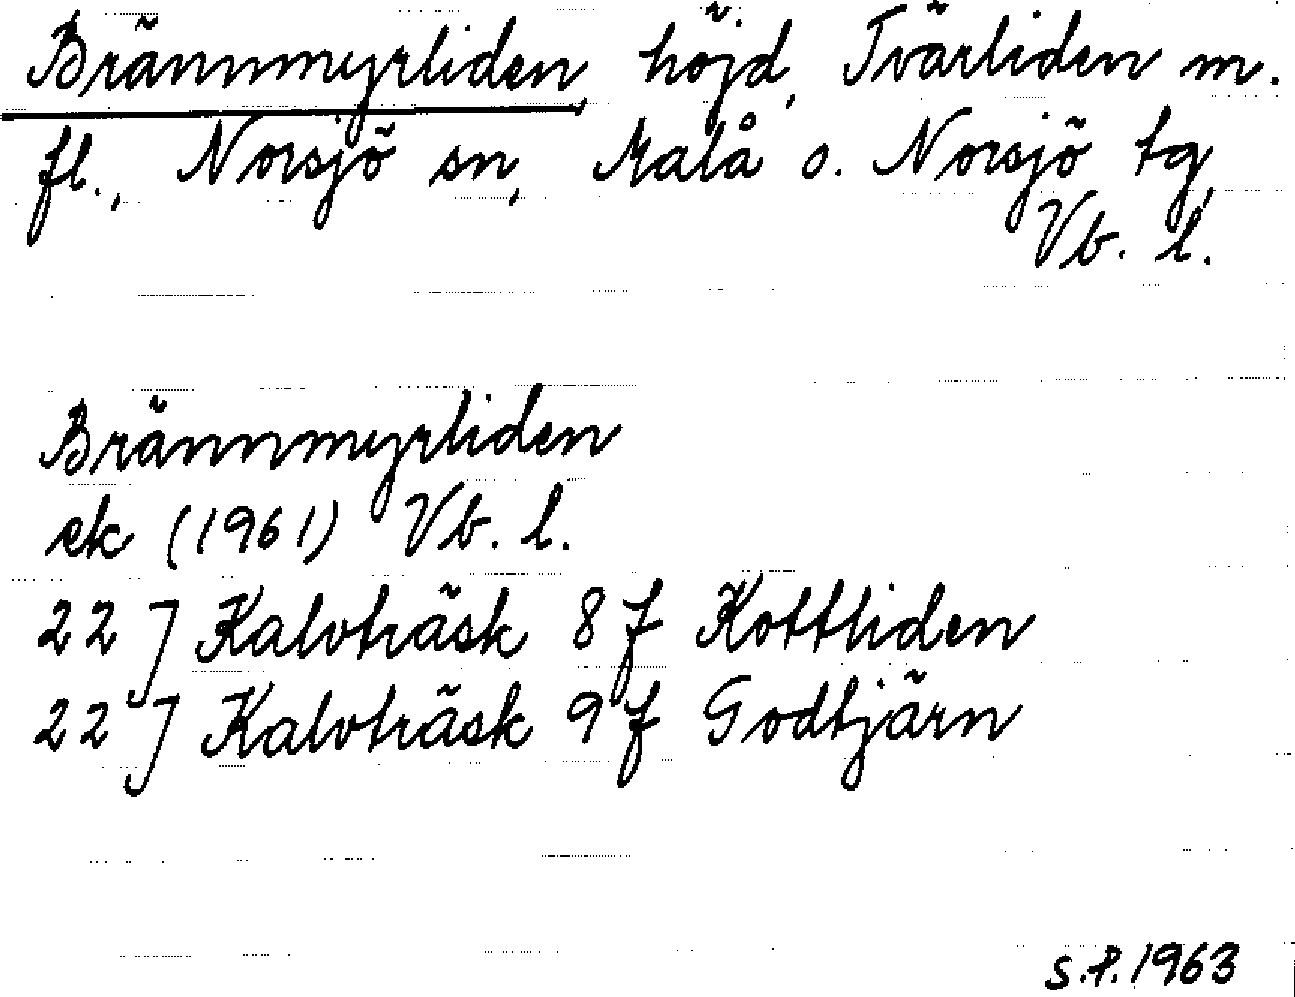 Brännmyrliden, höjd, Tvärliden m.
fl., Norsjö sn, Malå o. Norsjö tg,
Vb. l.
Brännmyrliden
ek (1961) Vb. l.
22 J Kalvträsk 8 f Kottliden
22 J Kalvträsk 9 f Godtjärn
S.P. 1963